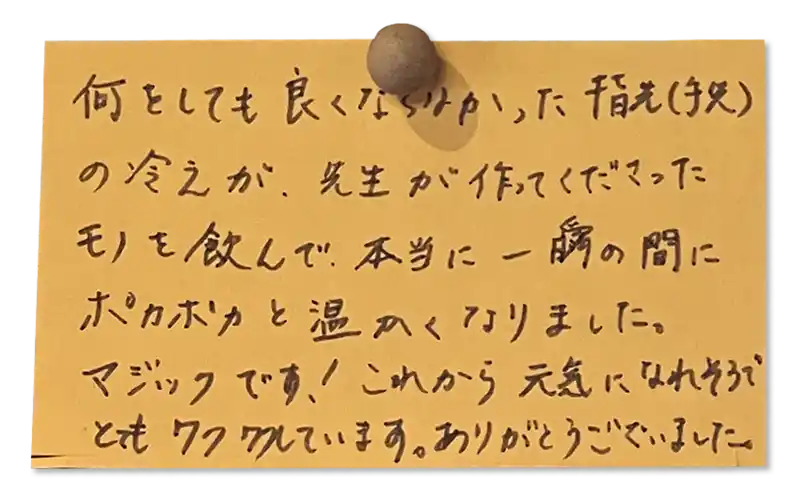 何をしても良くならなかった指先(手先)
の冷えが、先生が作ってくださった
モノを飲んで、本当に一瞬の間に
ポカポカと温かくなりました。
マジックです！これから元気になれそうで
とてもワクワクしています。ありがとうございました。